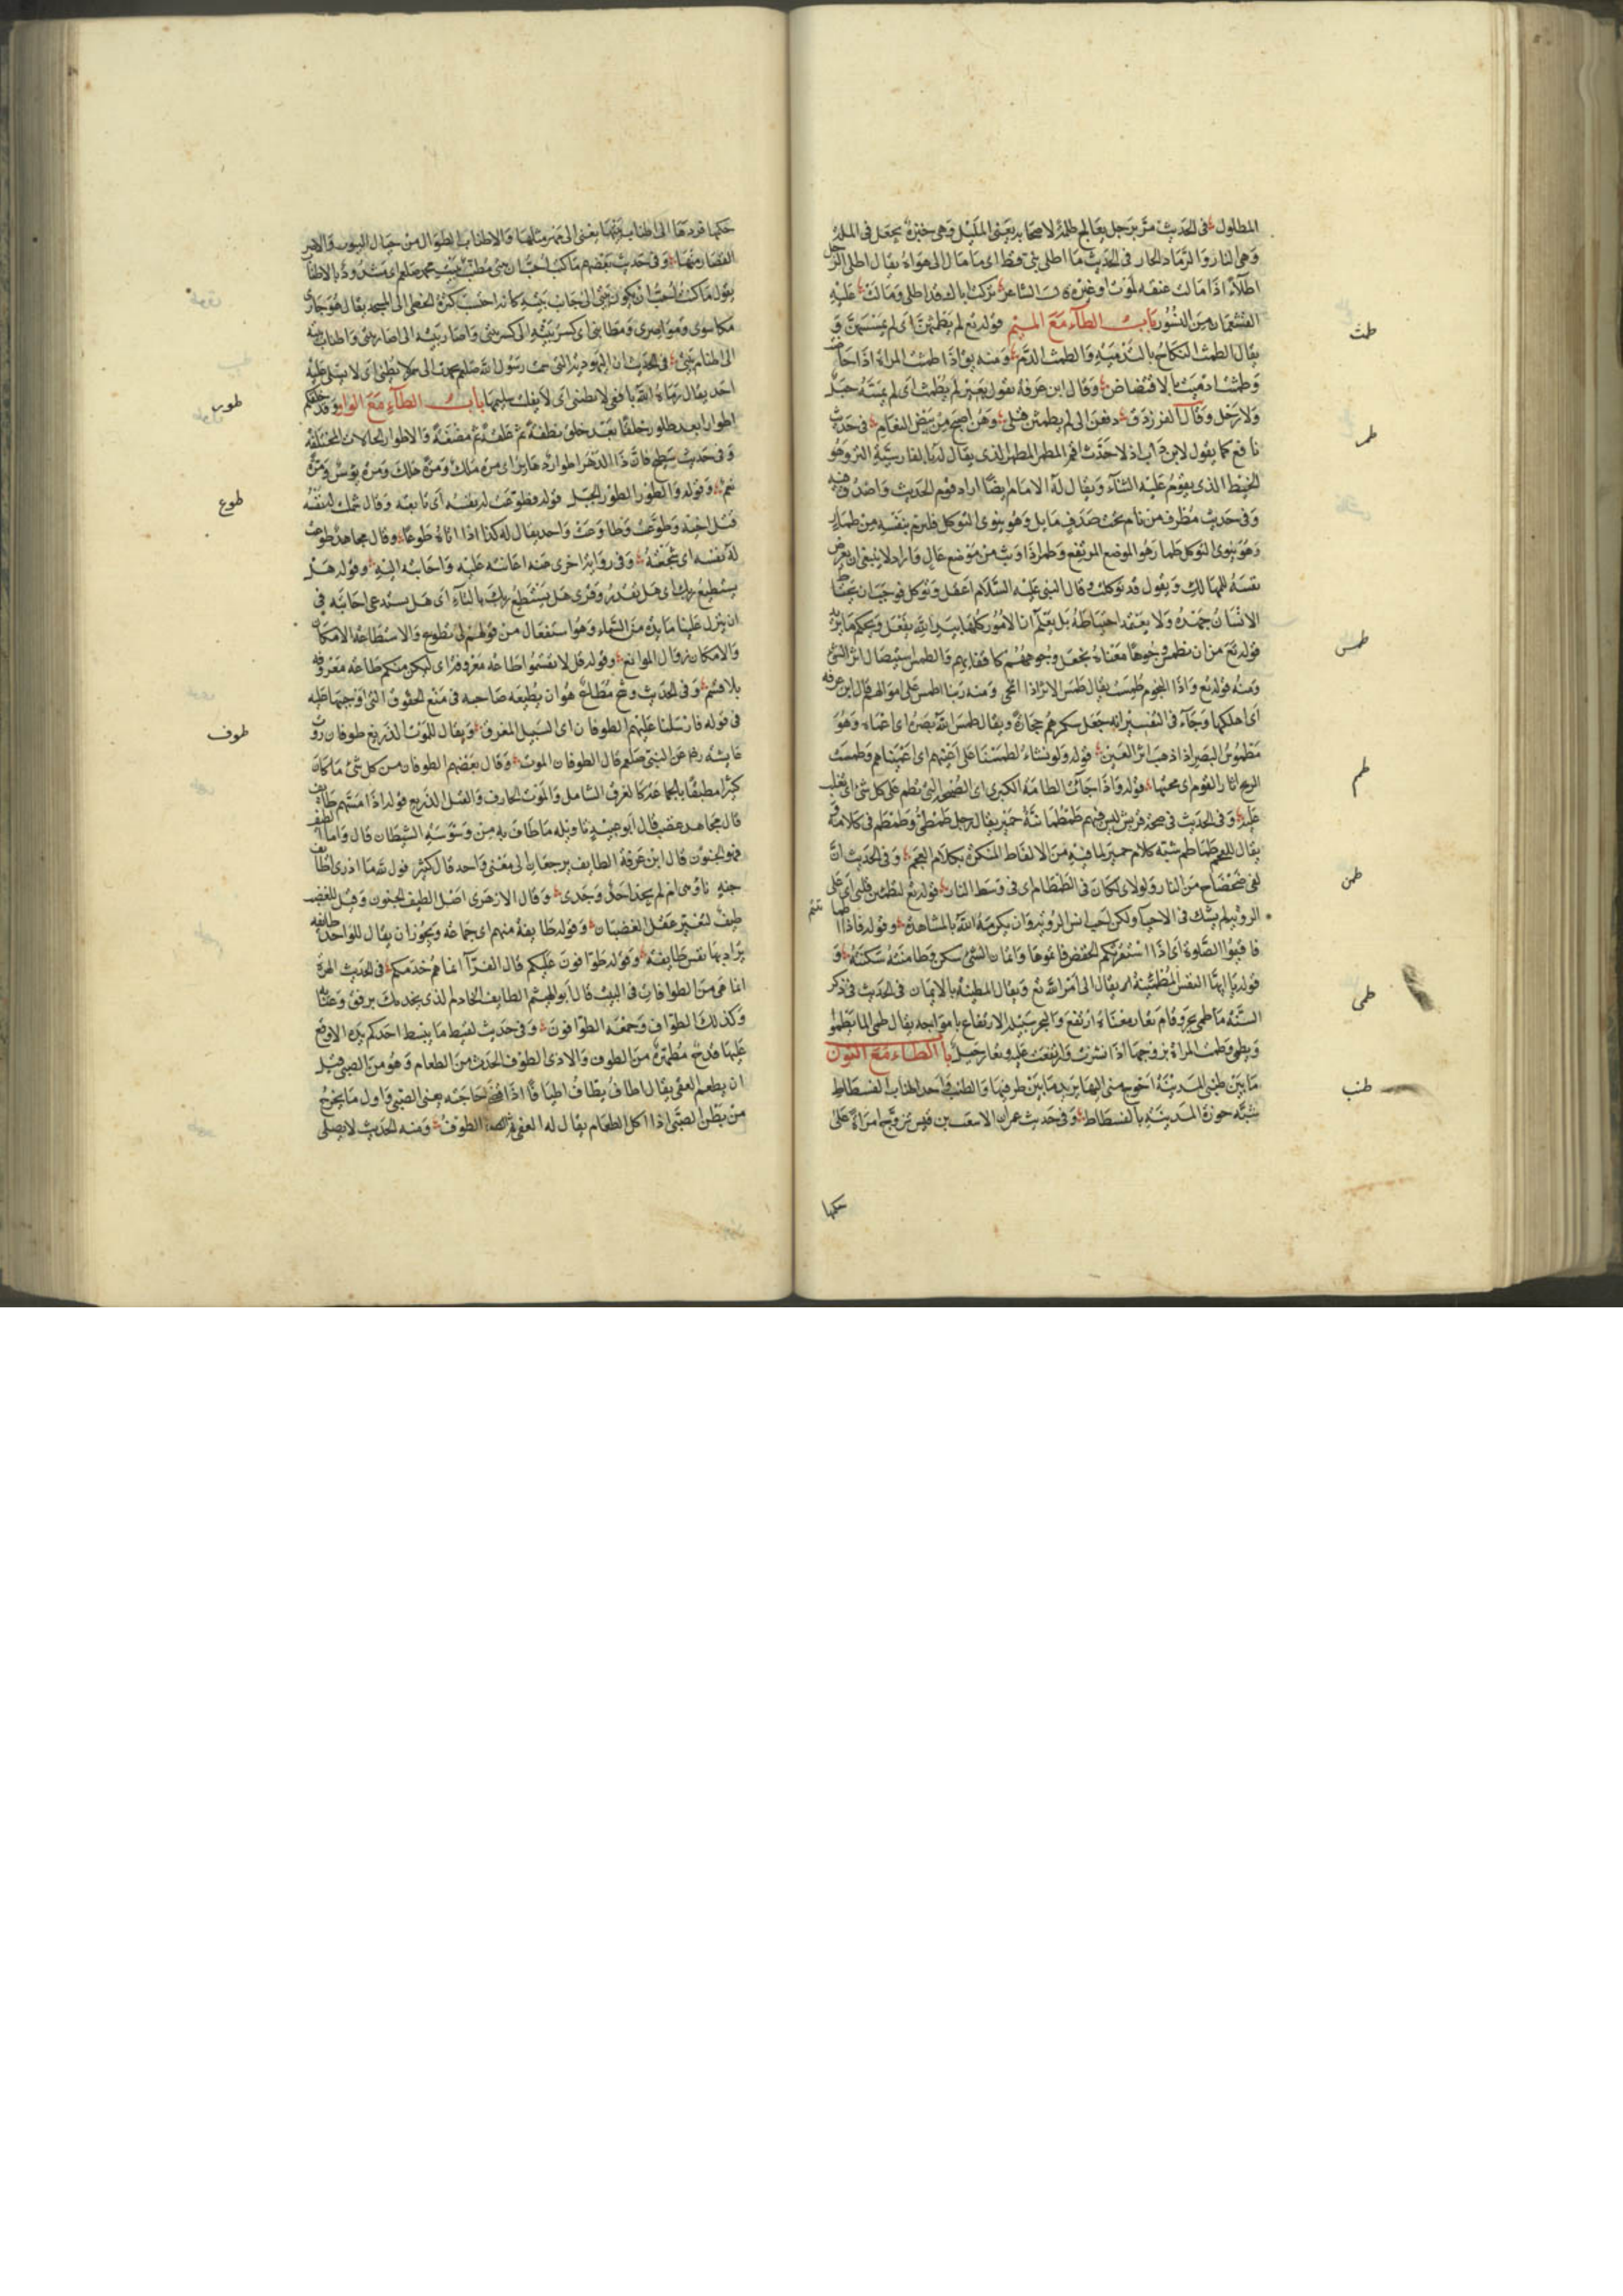 المطلول في الحديث مر برجل يعالج طلمة لاصحابه يعني المليل وهي خبزة يجعل في الملة
وهي النار والرماد الحار في الحديث ما اطلى نبي قط اي ما مال الى هواه يقال اطلى الرجل
اطلاء اذا مالت عنقه لموت او غيره قال الشاعر تركت اباك قد اطلى ومالت عليه
القشعمان من النسور باب الطاء مع الميم قوله تع لم يطمثهن اي لم يمسسهن و
يقال الطمث النكاح بالتدمية والطمث الدم ومنه يق اذا طمثت المراة اذا حاضت
وطمثت ادميت بالاقتضاض وقال ابن عرفة يقول بعير لم يطمث اي لم يمسه حبل
ولا رحل وقال الفرزدق دفعن الي لم يطمثن قبلي وهن اصح من بيض النعام في حديث
نافع كما يقول لابن داب اذا حدث اقم المطمر المطمر الذي يقال له بالفارسية التر وهو
الخيط الذي يقوم عليه البناء ويقال له الامام ايضا اراد قوم الحديث واصدق فيه
وفي حديث مطرف من نام تحت صدف مايل وهو ينوي التوكل فليرم بنفسه من طمار
وهو ينوي التوكل طمار هو الموضع المرتفع وطمر اذا وثب من موضع عال واراد لا ينبغي ان يعرض
نفسه للمهالك ويقول قد توكلت وقال النبي عليه السلام اعقل وتوكل فوجب ان يحتاط
الانسان جهده ولا يعتقد احتياطه بل يعلم ان الامور كلها بيد الله يفعل ويحكم ما يريد
قوله تع من ان نطمس وجوها معناه نجعل وجوههم كاقفايهم والطمس استيصال اثر الشي
ومنه قوله تع واذا النجوم طمست يقال طمس الاثر اذا امحى ومنه ربنا اطمس على اموالهم قال ابن عرفة
اي اهلكها وجاء في التفسير انه جعل سكرهم حجارة ويقال طمس الله بصره اي اعماه وهو
مطموس البصر اذا ذهب اثر العين قوله ولو نشاء لطمسنا على اعينهم اي اعميناهم وطمست
الريح اثار القوم اي محتها قوله واذا جاءت الطامة الكبرى اي الصيحة التي تطم على كل شي اي تغلب
عليه وفي الحديث في صحة قريش ليس فيهم طمطمانية حمير يقال رجل طمطمي وطمطم في كلامه
يقال للعجم طماطم شبه كلام حمير لما فيه من الالفاظ المنكرة بكلام العجم وفي الحديث ان
لفي ضحضاح من النار ولولاي لكان في الطمطام اي في وسط النار قوله تع ليطمئن قلبي اي على
الروية لم يشك في الاحيا ولكن احب انس الروية وان يكرمه الله بالمشاهدة وقوله فاذا اطماننتم
فاقيموا الصلوة اي اذا استقر بكم الخفض فاتموها واطمان الشي سكن وطامنته سكنته و
قوله يا ايتها النفس المطمئنة اي يقال الى امر الله تع ويقال المطمئنة بالايمان في الحديث في ذكر
السنة ما طمى بحر وقام تعار معناه ارتفع والبحر سبيله الارتفاع بامواجه يقال طمى الما يطمو
ويطمي وطمت المراة بزوجها اذا نشزت وارتفعت عليه وتعار جبل باب الطاء مع النون
ما بين طنبي المدينة احوج مني اليها يريد ما بين طرفيها والطنب احد اطناب الفسطاط
شبه حوزة المدينة بالفسطاط وفي حديث عمر ان الاشعث بن قيس تزوج امراة على
حكمها
طمث
طمر
طمس
طم
طمن
طمى
طنب
حكمها فردها الى اطناب بيتها يعني الى مهر مثلها والاطناب الطوال من حبال البيوت والاصر
القصار منها وفي حديث بعضهم ما كنت احب ان بيتي مطنب ببيت محمد صلعم اي مشدود بالاطناب
يقول ما كنت احب ان يكون بيتي الى جانب بيته كانه احتسب كثرة الخطى الى المسجد يقال هو جاري
مكاسري ومواصري ومطانبي اي كسر بيته الى كسر بيتي واصار بيته الى اصار بيتي واطناب بيته
الى اطناب بيتي في الحديث ان اليهودية التي سمت رسول الله صلعم عمدت الى سم لا يطني اي لا يسلم عليه
احد يقال رماه الله بافعى لا تطني اي لا يفلت سليمها باب الطاء مع الواو وقد خلقكم
اطوارا يعد طورا خلقا بعد خلق نطفة ثم علقة ثم مضغة والاطوار الحالات المختلفة
وفي حديث سطيح فان ذا الدهر اطوار دهارير اي مرة ملك ومرة هلك ومرة بؤس ومرة
نعم وقوله والطور الطور الجبل قوله فطوعت له نفسه اي تابعته وقال شمك له نفسه
قتل اخيه وطوعت وطاوعت واحد يقال له كذا اذا اتاه طوعا وقال مجاهد طوعت
له نفسه اي شجعته وفي رواية اخرى عنه اعانته عليه واجابته اليه وقوله هل
يستطيع ربك اي هل يقدر وقرئ هل تستطيع ربك بالتاء اي هل يستدعي اجابته في
ان ينزل علينا مائدة من السماء وهو استفعال من قولهم لي تطوع والاستطاعة الامكان
والامكان زوال الموانع وقوله قل لا تقسموا طاعة معروفة اي ليكن منكم طاعة معروفة
بلا قسم وفي الحديث وشح مطاع هو ان يطيعه صاحبه في منع الحقوق التي اوجبها عليه
في قوله فارسلنا عليهم الطوفان اي السيل المغرق ويقال للموت الذريع طوفان روت
عايشه رض عن النبي صلعم قال الطوفان الموت وقال بعضهم الطوفان من كل شي ما كان
كثيرا مطبقا بالجماعة كالغرق الشامل والموت الجارف والقتل الذريع قوله اذا مسهم طايف
قال مجاهد غضب قال ابو عبيد تاويله ما طاف به من وسوسة الشيطان قال واما الطيف
فهو الجنون قال ابن عرفة الطايف يرجعان الى معنى واحد قال كثير فوالله ما ادري اطايف
جنة تاوبني ام لم يجد احد وجدي وقال الازهري اصل الطيف الجنون وقيل للغضب
طيف لتغير عقل الغضبان وقوله طايفة منهم اي جماعة ويجوز ان يقال للواحد طايفة
يراد بها نفس طايفة وقوله طوافون عليكم قال الفرا انما هم خدمكم في الحديث الهرة
انما هي من الطوافات في البيت قال ابو الهيثم الطايف الخادم الذي يخدمك برفق وعناية
وكذلك الطواف وجمعه الطوافون وفي حديث لقيط ما يبسط احدكم يده الا وقع
عليها قدح مطهرة من الطوف والاذى الطوف الحدث من الطعام وهو من الصبي قبل
ان يطعم العقي يقال اطاف يطاف اطيافا اذا قضى حاجته يعني الصبي واول ما يخرج
من بطن الصبي اذا اكل الطعام يقال له العقي ثم بعده الطوف ومنه الحديث لا يصلي
طور
طوع
طوف